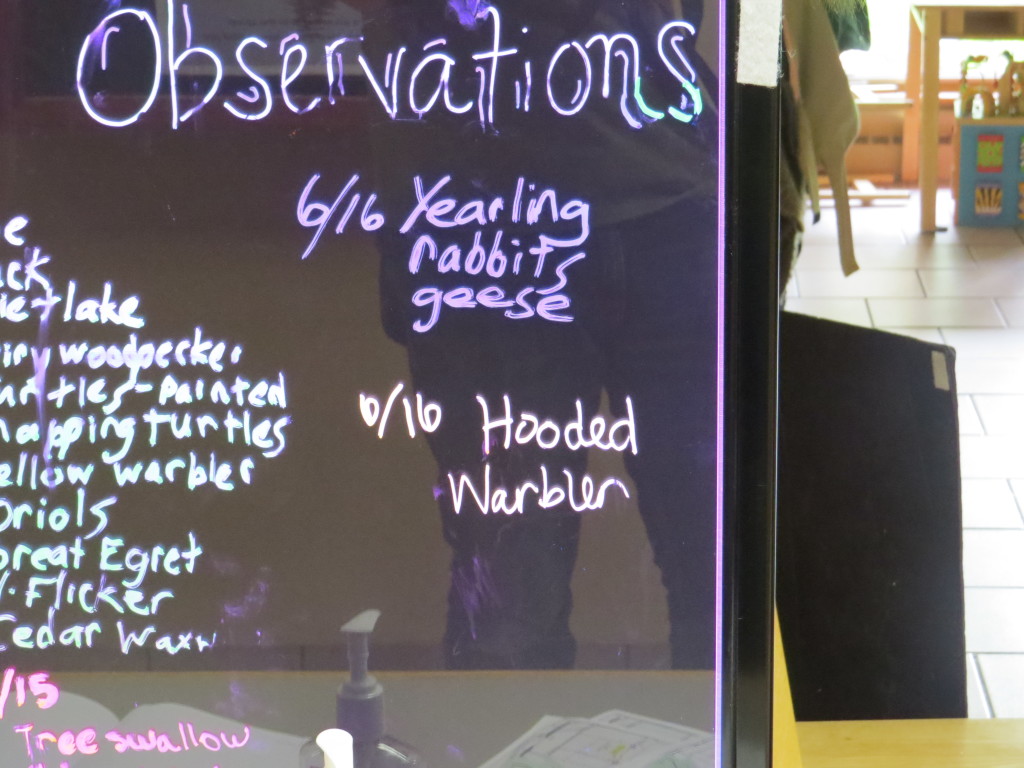 Observations
6/16 Yearling
rabbits
geese
6/16 Hooded
Warbler
lake
woodpecker
Painted
Turtles
warbler
Oriols
Great Egret
Flicker
Cedar Waxw
/15
Tree swallow